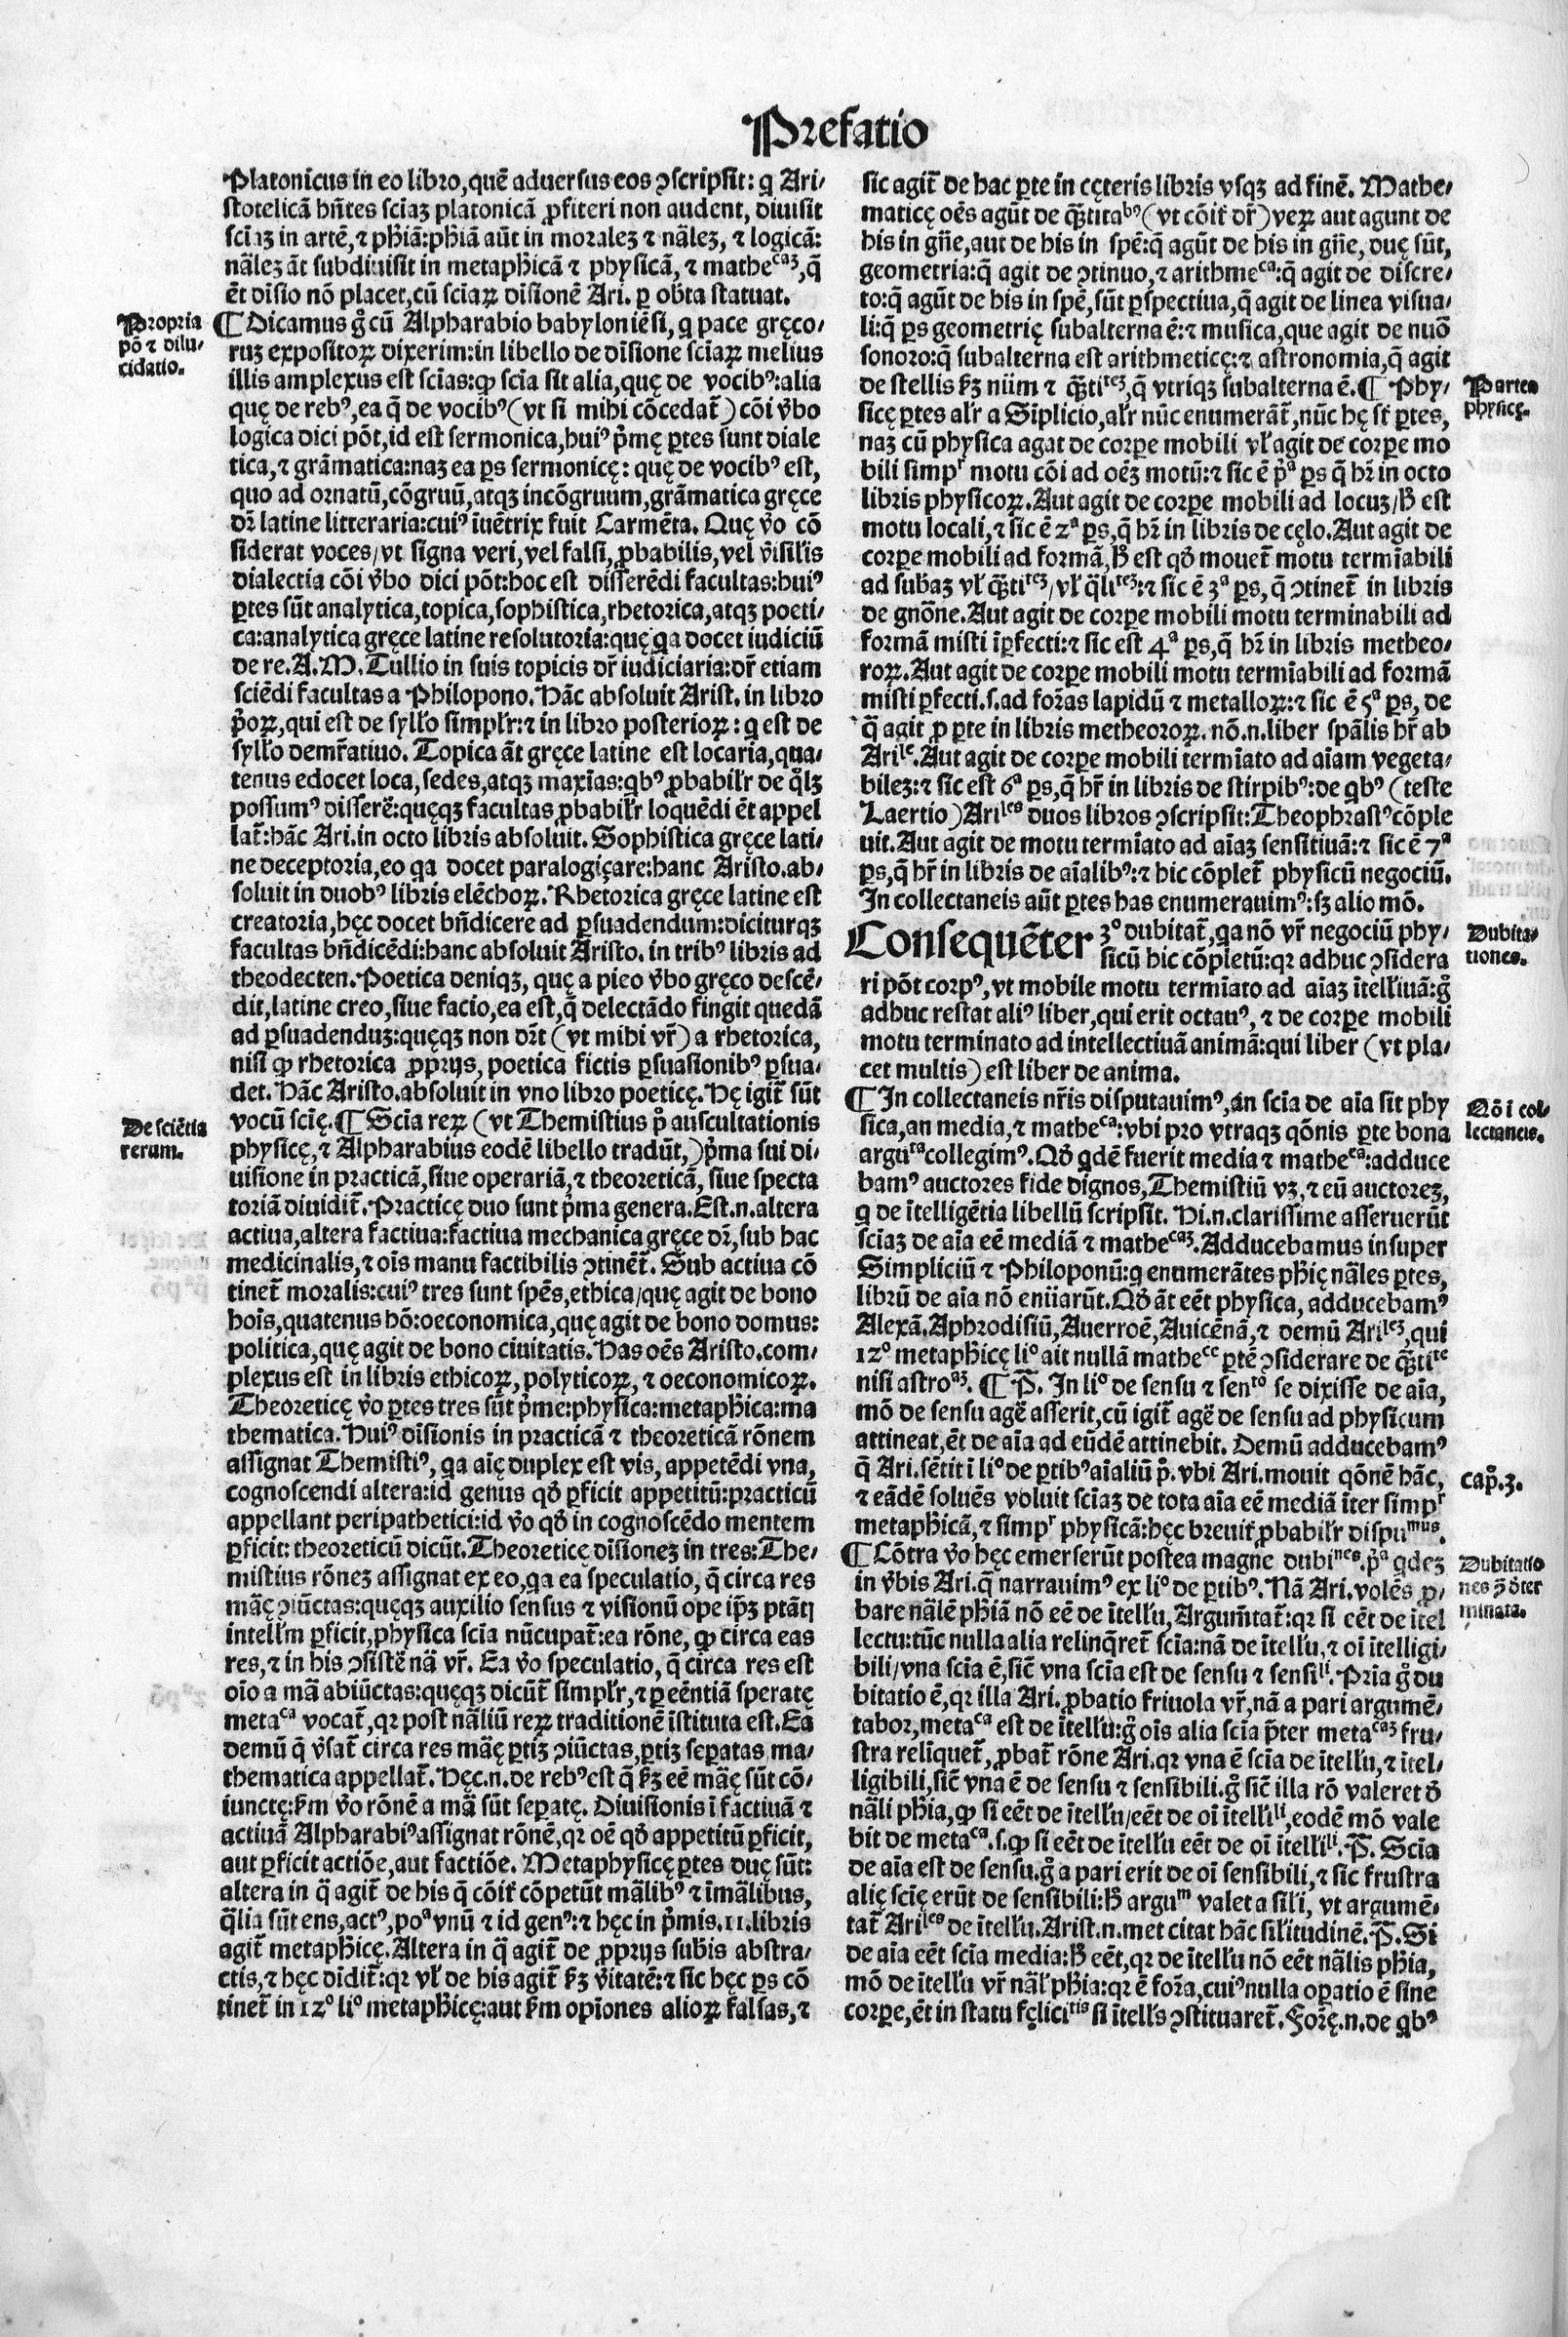 Prefatio
Platonicus in eo libro, quē aduersus eos ꝯscripsit: q Ari-
stotelicā hñtes sciaꝫ platonicā ꝓfiteri non audent, diuisit
sciaꝫ in artē, ⁊ phiā: phiā aūt in moraleꝫ ⁊ nāleꝫ, ⁊ logicā:
nāleꝫ āt subdiuisit in metaphicā ⁊ physicā, ⁊ matheᶜᵃꝫ, q̄
ēt dīsio nō placet, cū sciaꝝ dīsionē Ari. ꝑ obta statuat.
Propria
pō ⁊ dilu-
cidatio.
¶ Dicamus gͦ cū Alpharabio babyloniēsi, q pace gręco-
ruꝫ expositoꝝ dixerim: in libello de dīsione sciaꝝ melius
illis amplexus est scīas: ꝙ scīa sit alia, quę de vocibꝰ: alia
quę de rebꝰ, ea q̄ de vocibꝰ (vt si mihi cōcedat̄) cōi v̄bo
logica dici pōt, id est sermonica, huiꝰ p̄mę ꝑtes sunt diale
tica, ⁊ grāmatica: naꝫ ea ps sermonicę: quę de vocibꝰ est,
quo ad ornatū, cōgruū, atqꝫ incōgruum, grāmatica gręce
dr̄ latine litteraria: cuiꝰ īuētrix fuit Carmēta. Quę v̄o cō
siderat voces / vt signa veri, vel falsi, ꝓbabilis, vel v̄isilis
dialectia cōi v̄bo dici pōt: hoc est disserēdi facultas: huiꝰ
ꝑtes sūt analytica, topica, sophistica, rhetorica, atqꝫ poeti-
ca: analytica gręce latine resolutoria: quę qa docet iudiciū
de re. A. M. Tullio in suis topicis dr̄ iudiciaria: dr̄ etiam
sciēdi facultas a Philopono. Hāc absoluit Arist. in libro
p̄oꝝ, qui est de syllo simplr̄: ⁊ in libro posterioꝝ: q est de
syllo demr̄atiuo. Topica āt gręce latine est locaria, qua-
tenus edocet loca, sedes, atqꝫ maxīas: qbꝰ ꝓbabilr̄ de q̄lꝫ
possumꝰ disserē: quęqꝫ facultas ꝓbabilr̄ loquēdi ēt appel
lat̄: hāc Ari. in octo libris absoluit. Sophistica gręce lati-
ne deceptoria, eo qa docet paralogiçare: hanc Aristo. ab-
soluit in duobꝰ libris elēchoꝝ. Rhetorica gręce latine est
creatoria, hęc docet bn̄dicere ad ꝑsuadendum: diciturqꝫ
facultas bn̄dicēdi: hanc absoluit Aristo. in tribꝰ libris ad
theodecten. Poetica deniqꝫ, quę a pieo v̄bo gręco descē-
dit, latine creo, siue facio, ea est, q̄ delectādo fingit quedā
ad ꝑsuadenduꝫ: quęqꝫ non dr̄t (vt mihi vr̄) a rhetorica,
nisi ꝙ rhetorica ꝓprijs, poetica fictis ꝑsuasionibꝰ ꝑsua-
det. Hāc Aristo. absoluit in vno libro poeticę. Hę igit̄ sūt
De sciētia
rerum.
vocū scīę. ¶ Scīa reꝝ (vt Themistius pͦ auscultationis
physicę, ⁊ Alpharabius eodē libello tradūt,) p̄ma sui di-
uisione in practicā, siue operariā, ⁊ theoreticā, siue specta
toriā diuidit̄. Practicę duo sunt p̄ma genera. Est. n. altera
actiua, altera factiua: factiua mechanica gręce dr̄, sub hac
medicinalis, ⁊ oīs manu factibilis ꝯtinēt̄. Sub actiua cō
tinet̄ moralis: cuiꝰ tres sunt spēs, ethica / quę agit de bono
hoīs, quatenus hō: oeconomica, quę agit de bono domus:
politica, quę agit de bono ciuitatis. Has oēs Aristo. com-
plexus est in libris ethicoꝝ, polyticoꝝ, ⁊ oeconomicoꝝ.
Theoreticę v̄o ꝑtes tres sūt p̄me: physica: metaphica: ma
thematica. Huiꝰ dīsionis in practicā ⁊ theoreticā rōnem
assignat Themistiꝰ, qa aīę duplex est vis, appetēdi vna,
cognoscendi altera: id genus qd̄ ꝑficit appetitū: practicū
appellant peripathetici: id v̄o qd̄ in cognoscēdo mentem
ꝑficit: theoreticū dicūt. Theoreticę dīsioneꝫ in tres: The-
mistius rōneꝫ assignat ex eo, qa ea speculatio, q̄ circa res
māę ꝯiūctas: quęqꝫ auxilio sensus ⁊ visionū ope ip̄ꝫ ptātj
intellm ꝑficit, physica scīa nūcupat̄: ea rōne, ꝙ circa eas
res, ⁊ in his ꝯsistē nā vr̄. Ea v̄o speculatio, q̄ circa res est
oīo a mā abiūctas: quęqꝫ dicūt̄ simplr̄, ⁊ ꝑ eēntiā speratę
metaᶜᵃ vocat̄, qr post nāliū reꝝ traditionē īstituta est. Ea
demū q̄ v̄sat̄ circa res māę ꝑtiꝫ ꝯiūctas, ꝑtiꝫ seꝑatas ma-
thematica appellat̄. Hęc. n. de rebꝰ est q̄ kꝫ eē māę sūt cō-
iunctę: km v̄o rōnē a mā sūt seꝑatę. Diuisionis ī factiuā ⁊
actiuā Alpharabiꝰ assignat rōnē, qr oē qd̄ appetitū ꝑficit,
aut ꝑficit actiōe, aut factiōe. Metaphysicę ꝑtes duę sūt:
altera in q̄ agit̄ de his q̄ cōit̄ cōpetūt mālibꝰ ⁊ īmālibus,
q̄lia sūt ens, actꝰ, poᵃ vnū ⁊ id genꝰ: ⁊ hęc in p̄mis. 11. libris
agit̄ metaphicę. Altera in q̄ agit̄ de ꝓprijs subīs abstra-
ctis, ⁊ hęc dīdit̄: qr vl̄ de his agit̄ kꝫ v̄itatē: ⁊ sic hęc ps cō
tinet̄ in 12º liº metaphicę: aut km opīones alioꝝ falsas, ⁊
sic agit̄ de hac ꝑte in cęteris libris vsqꝫ ad finē. Mathe-
maticę oēs agūt de q̄ꝫtitaᵇꝰ (vt cōit̄ dr̄) veꝝ aut agunt de
his in gn̄e, aut de his in spē: q̄ agūt de his in gn̄e, duę sūt,
geometria: q̄ agit de ꝯtinuo, ⁊ arithmeᶜᵃ: q̄ agit de discre-
to: q̄ agūt de his in spē, sūt ꝑspectiua, q̄ agit de linea visua-
li: q̄ ps geometrię subalterna ē: ⁊ musica, que agit de nuō
sonoro: q̄ subalterna est arithmeticę: ⁊ astronomia, q̄ agit
de stellis kꝫ nūm ⁊ q̄ꝫtiᵗᵉꝫ, q̄ vtriqꝫ subalterna ē. ¶ Phy-
Partes
physicę.
sicę ꝑtes alr̄ a Siplicio, alr̄ nūc enumerāt̄, nūc hę st̄ ꝑtes,
naꝫ cū physica agat de corꝑe mobili vl̄ agit de corꝑe mo
bili simpʳ motu cōi ad oēꝫ motū: ⁊ sic ē p̄ᵃ ps q̄ hr̄ in octo
libris physicoꝝ. Aut agit de corꝑe mobili ad locuꝫ / h̄ est
motu locali, ⁊ sic ē 2ᵃ ps, q̄ hr̄ in libris de cęlo. Aut agit de
corꝑe mobili ad formā, h̄ est qd̄ mouet̄ motu termīabili
ad subaꝫ vl̄ q̄ꝫtiᵗᵉꝫ / vl̄ q̄liᵗᵉꝫ: ⁊ sic ē 3ᵃ ps, q̄ ꝯtinet̄ in libris
de gnōne. Aut agit de corꝑe mobili motu terminabili ad
formā misti īꝑfecti: ⁊ sic est 4ᵃ ps, q̄ hr̄ in libris metheo-
roꝝ. Aut agit de corꝑe mobili motu termīabili ad formā
misti ꝑfecti. s. ad for̄as lapidū ⁊ metalloꝝ: ⁊ sic ē 5ᵃ ps, de
q̄ agit ꝓ ꝑte in libris metheoroꝝ. nō. n. liber spālis hr̄ ab
Ariˡᵉ. Aut agit de corꝑe mobili termīato ad aīam vegeta-
bileꝫ: ⁊ sic est 6ᵃ ps, q̄ hr̄ in libris de stirpibꝰ: de qbꝰ (teste
Laertio) Ariˡᵉˢ duos libros ꝯscripsit: Theophrastꝰ cōple
uit. Aut agit de motu termīato ad aīaꝫ sensitiuā: ⁊ sic ē 7ᵃ
ps, q̄ hr̄ in libris de aīalibꝰ: ⁊ hic cōplet̄ physicū negociū.
In collectaneis aūt ꝑtes has enumerauimꝰ: sꝫ alio mō.
Consequēter 3º dubitat̄, qa nō vr̄ negociū phy-
Dubita-
tiones.
sicū hic cōpletū: qr adhuc ꝯsidera
ri pōt corpꝰ, vt mobile motu termīato ad aīaꝫ ītelliuā: gͦ
adhuc restat aliꝰ liber, qui erit octauꝰ, ⁊ de corꝑe mobili
motu terminato ad intellectiuā animā: qui liber (vt pla-
cet multis) est liber de anima.
¶ In collectaneis nr̄is disputauimꝰ, an scīa de aīa sit phy
Qō ī col-
lectaneis.
sica, an media, ⁊ matheᶜᵃ: vbi pro vtraqꝫ qōnis ꝑte bona
arguᵗᵃ collegimꝰ. Qd̄ qdē fuerit media ⁊ matheᶜᵃ: adduce
bamꝰ auctores fide dignos, Themistiū vꝫ, ⁊ eū auctoreꝫ,
q de ītelligētia libellū scripsit. Hi. n. clarissime asseruerūt
sciaꝫ de aīa eē mediā ⁊ matheᶜᵃꝫ. Adducebamus insuper
Simpliciū ⁊ Philoponū: q enumerātes phię nāles ꝑtes,
librū de aīa nō enūarūt. Qd̄ āt eēt physica, adducebamꝰ
Alexā. Aphrodisiū, Auerroē, Auicēnā, ⁊ demū Ariˡᵉꝫ, qui
12º metaphicę liº ait nullā matheᶜᵉ ꝑtē ꝯsiderare de q̄ꝫtiᵗᵉ
nisi astroᵃꝫ. ¶ P̄. In liº de sensu ⁊ senᵗº se dixisse de aīa,
mō de sensu agē asserit, cū igit̄ agē de sensu ad physicum
attineat, ēt de aīa ad eūdē attinebit. Demū adducebamꝰ
q̄ Ari. sētit ī liº de ꝑtibꝰ aīaliū pͦ. vbi Ari. mouit qōnē hāc,
capͦ. 3.
⁊ eādē soluēs voluit sciaꝫ de tota aīa eē mediā īter simpʳ
metaphicā, ⁊ simpʳ physicā: hęc breuit̄ ꝓbabilr̄ dispuᵐᵘˢ.
¶ Cōtra v̄o hęc emerserūt postea magne dubiⁿᵉˢ. p̄ᵃ qdeꝫ
Dubitatio
nes p̄ ōter
minata.
in v̄bis Ari. q̄ narrauimꝰ ex liº de ꝑtibꝰ. Nā Ari. volēs ꝓ-
bare nālē phiā nō eē de ītellu, Argum̄tat̄: qr si eēt de ītel
lectu: tūc nulla alia relinq̄ret̄ scīa: nā de ītellu, ⁊ oī ītelligi-
bili / vna scīa ē, sic̄ vna scīa est de sensu ⁊ sensiˡⁱ. Pria gͦ du
bitatio ē, qr illa Ari. ꝓbatio friuola vr̄, nā a pari argumē-
tabor, metaᶜᵃ est de ītellu: gͦ oīs alia scīa p̄ter metaᶜᵃꝫ fru-
stra relīquet̄, ꝓbat̄ rōne Ari. qr vna ē scīa de ītellu, ⁊ ītel-
ligibili, sic̄ vna ē de sensu ⁊ sensibili. gͦ sic̄ illa rō valeret d̄
nāli phia, ꝙ si eēt de ītellu / eēt de oī ītelliˡⁱ, eodē mō vale
bit de metaᶜᵃ. s. ꝙ si eēt de ītellu eēt de oī ītelliˡⁱ. P̄. Scīa
de aīa est de sensu. gͦ a pari erit de oī sensibili, ⁊ sic frustra
alię scīę erūt de sensibili: h̄ arguᵐ valet a sili, vt argumē-
tat̄ Ariˡᵉˢ de ītellu. Arist. n. met citat hāc silitudinē. P̄. Si
de aīa eēt scīa media: h̄ eēt, qr de ītellu nō eēt nālis phia,
mō de ītellu vr̄ nāl̄ phia: qr ē for̄a, cuiꝰ nulla oꝑatio ē sine
corꝑe, ēt in statu fęliciᵗⁱˢ si ītells ꝯstituaret̄. For̄ę. n. de qbꝰ